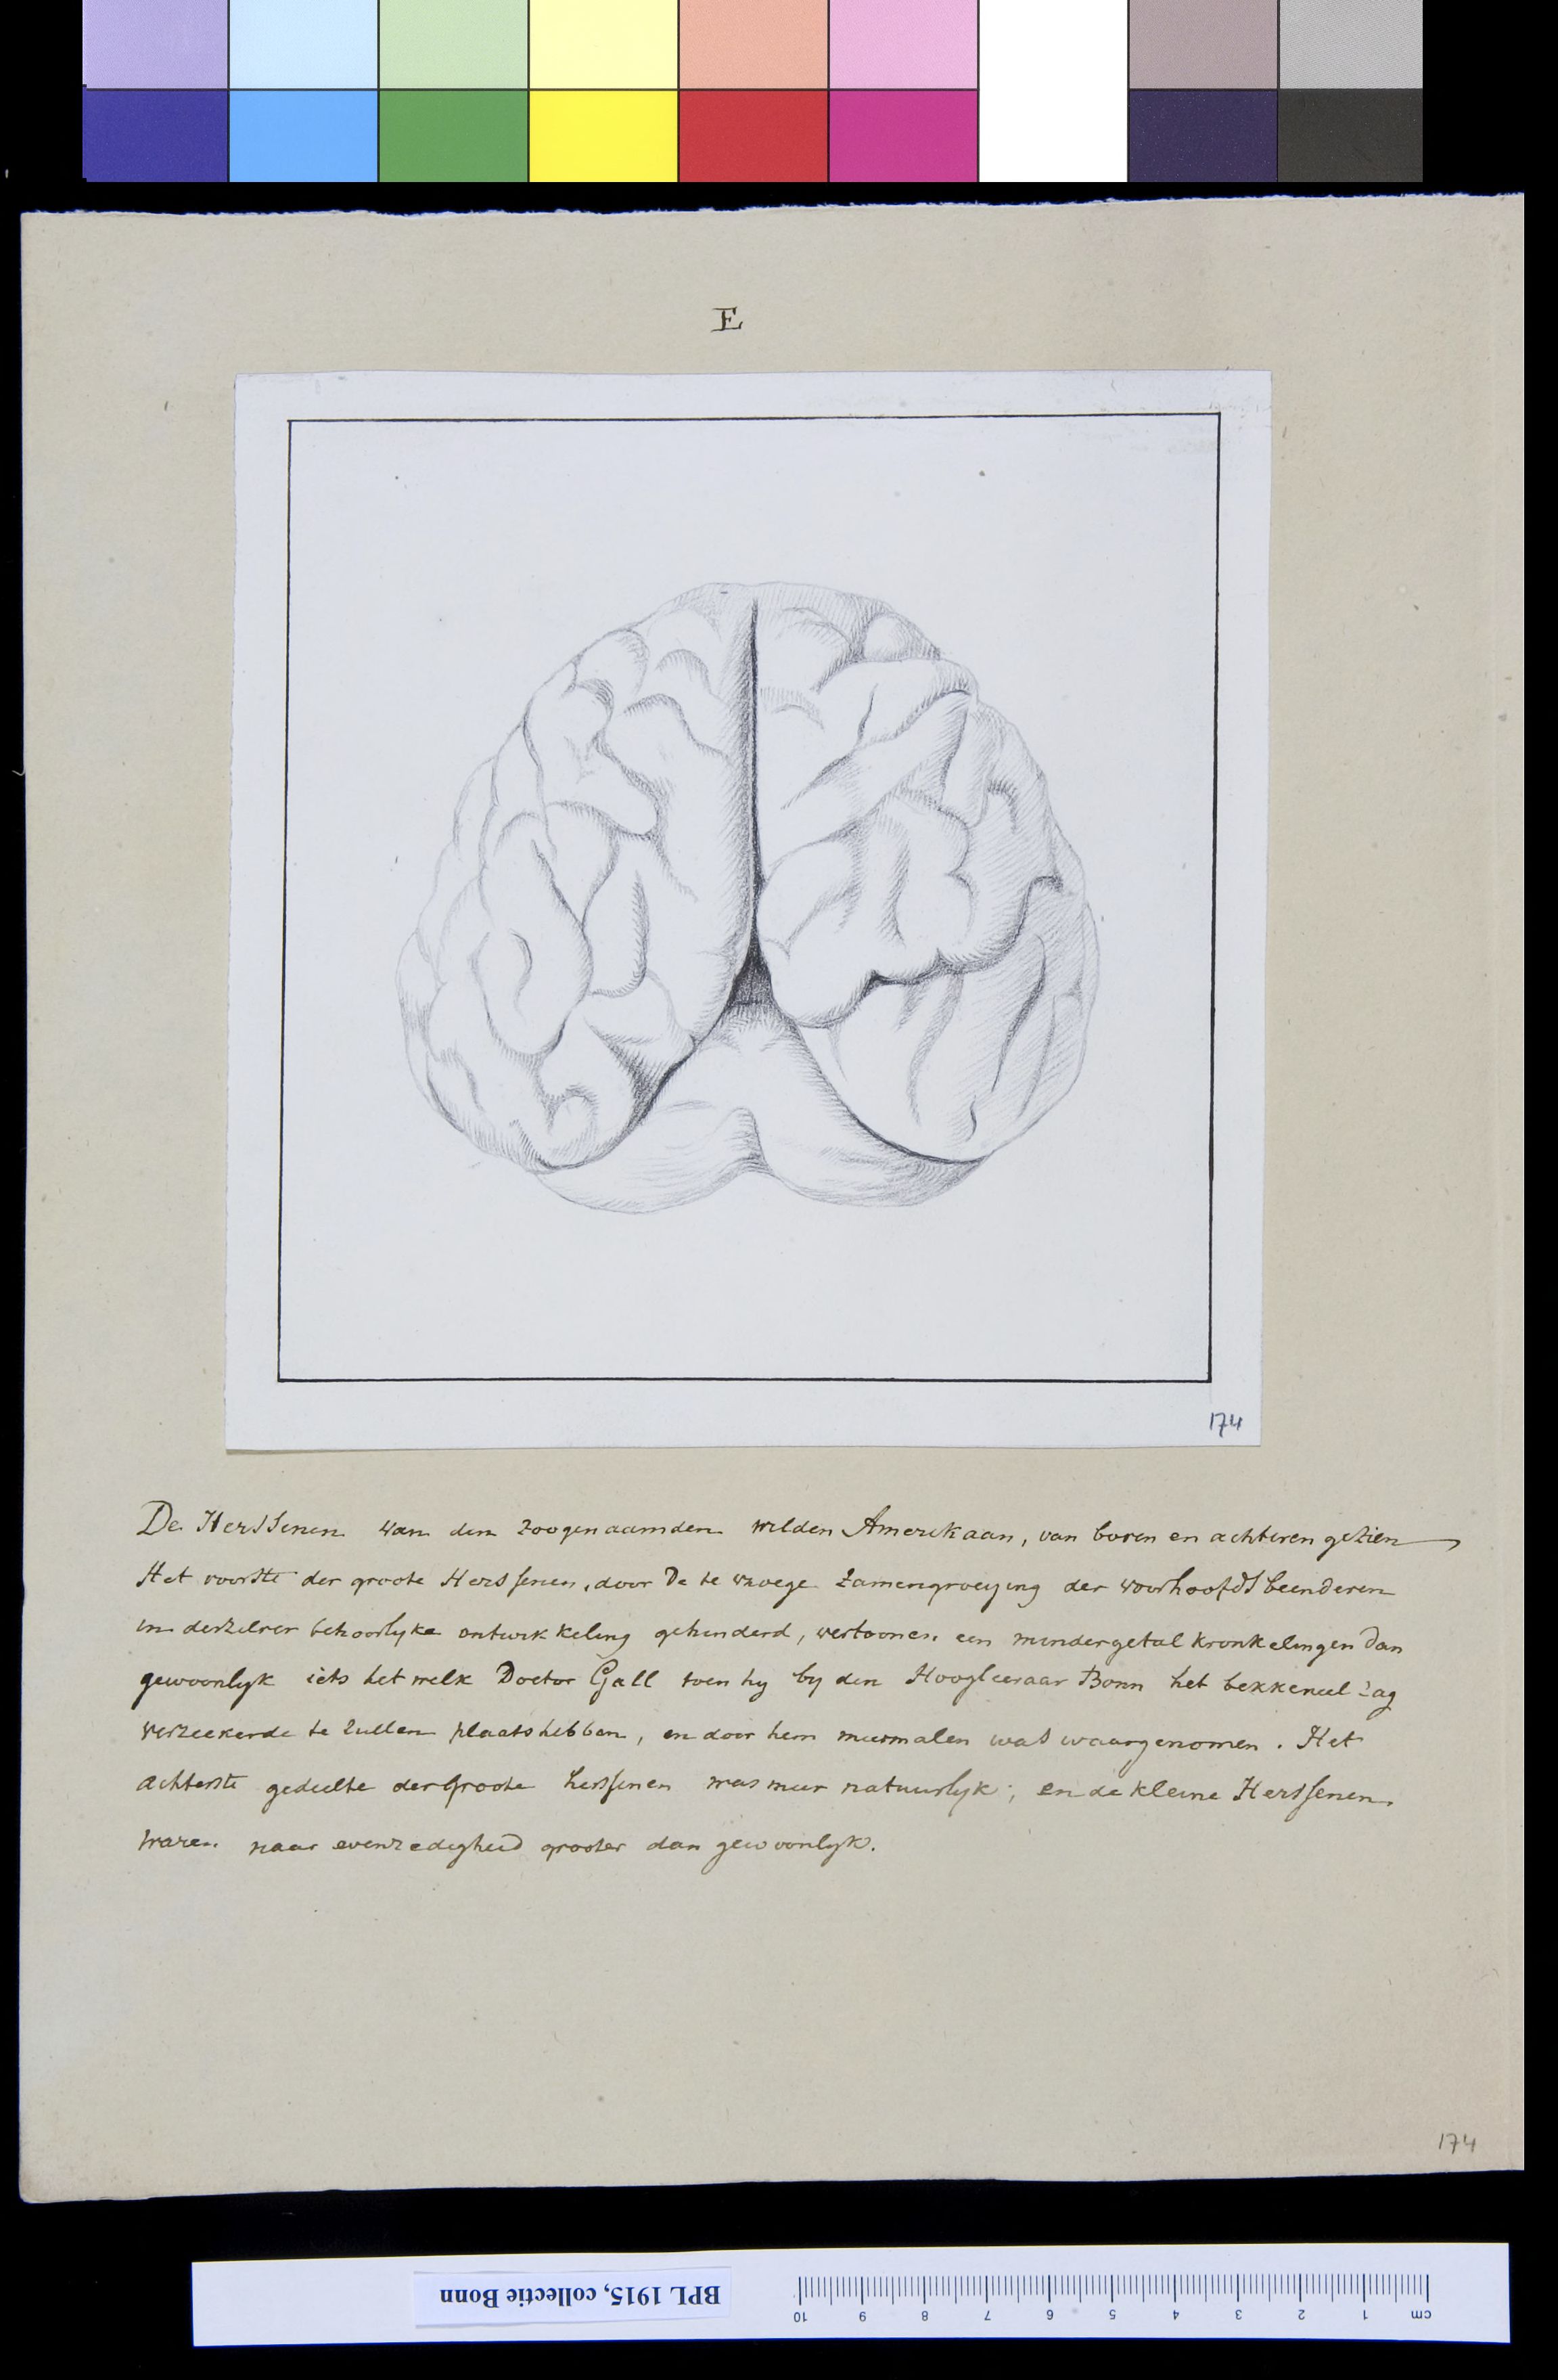 E
174
De Herssenen van den zoogenaamden wilden Amerikaan, van boven en achteren gezien
Het voorste der groote Herssenen, door de te vroege zamengroeijing der voorhoofds beenderen
in derzelver behoorlyke ontwikkeling gehinderd, vertoonen een minder getal kronkelingen dan
gewoonlyk iets het welk Doctor Gall toen hy by den Hoogleeraar Bonn het bekkeneel zag
verzeekerde te zullen plaats hebben, en door hem meermalen was waargenomen. Het
achterste gedeelte der groote herssenen was meer natuurlyk; en de kleine Herssenen
waren naar evenredigheid grooter dan gewoonlyk.
174
BPL 1915, collectie Bonn
10 9 8 7 6 5 4 3 2 1 cm